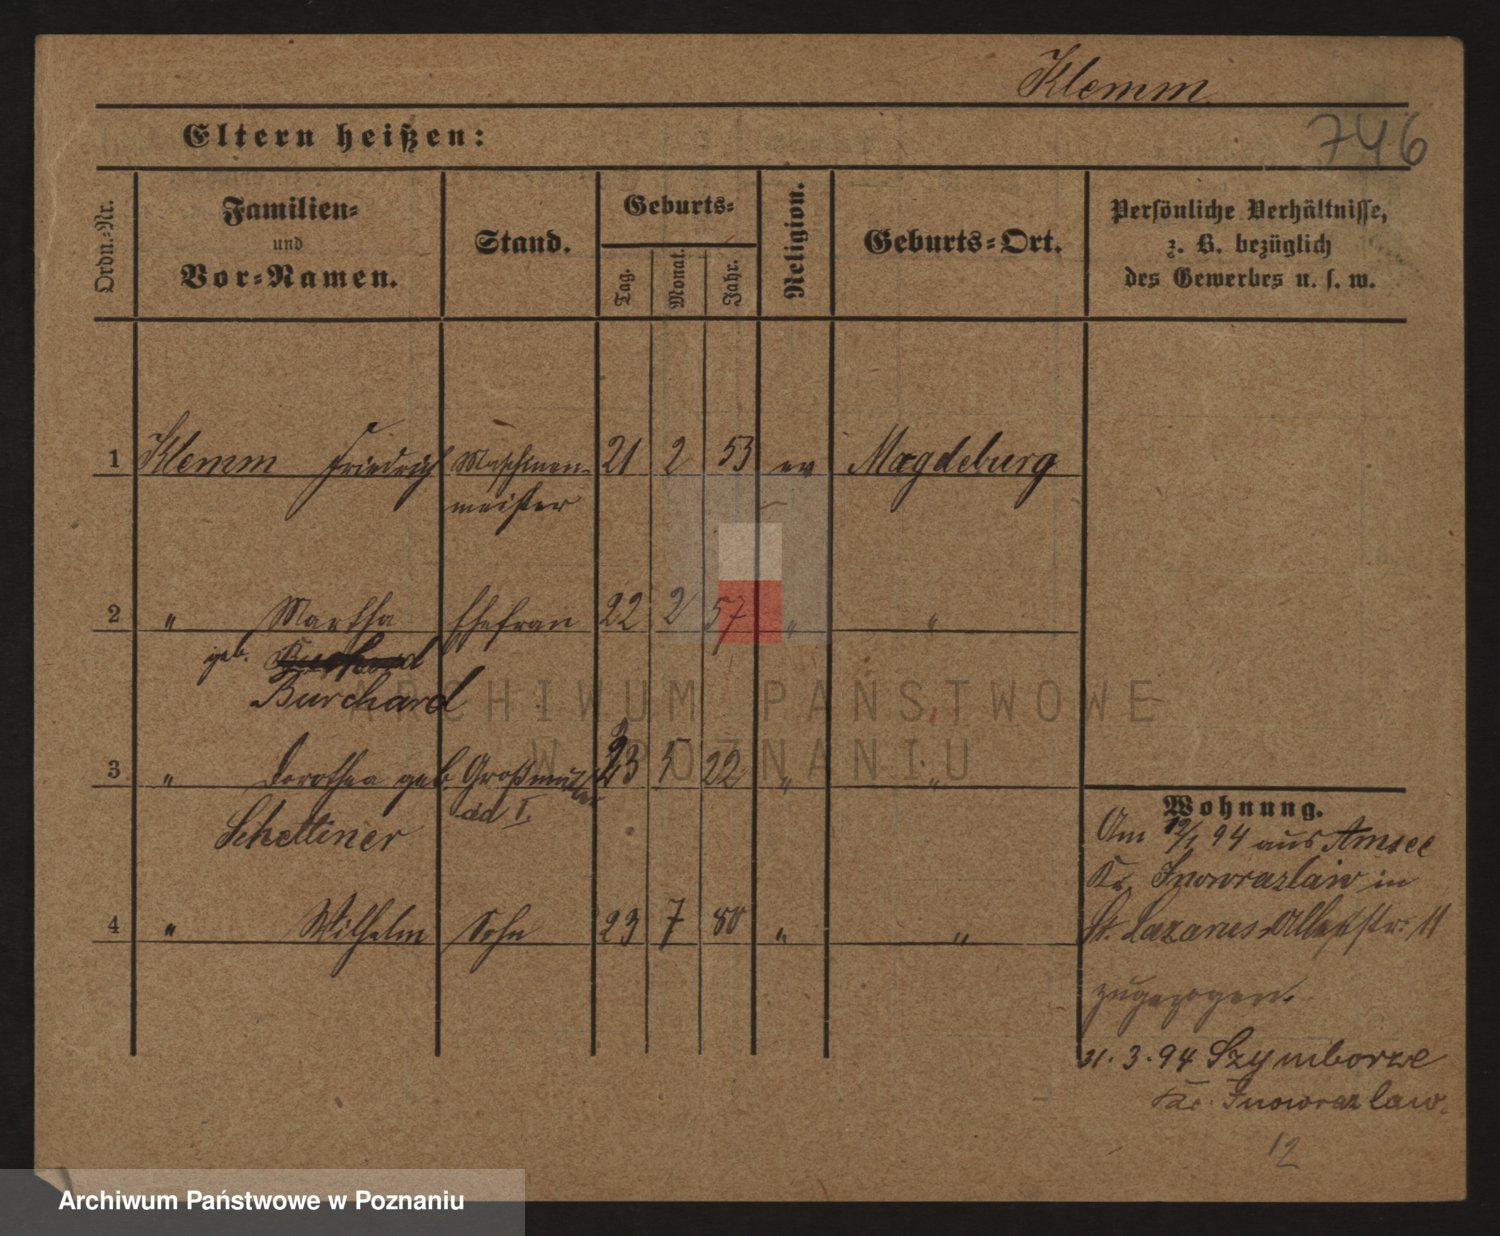 Klemm
746
Eltern heißen:
Ordn.-Nr.
Familien-
und
Vor-Namen.
Stand.
Geburts-
Tag.
Monat.
Jahr.
Religion.
Geburts-Ort.
Persönliche Verhältnisse,
z. B. bezüglich
des Gewerbes u. s. w.
1 Klemm Friedrich Maschinen- 21 2 53 ev Magdeburg
meister
2 " Martha Ehefrau 22 2 57 " "
geb.
Burchard
3 " Dorothea geb Großmutter 23 5 22 " "
Schettiner ad I.
4 " Wilhelm Sohn 23 7 80 " "
Wohnung.
Am 12/1 94 aus Amsee
Kr. Inowrazlaw in
St. Lazarus 11
zugezogen.
31. 3. 94 Szymborze
Kr. Inowrazlaw.
12
ARCHIWUM PAŃSTWOWE
W POZNANIU
Archiwum Państwowe w Poznaniu